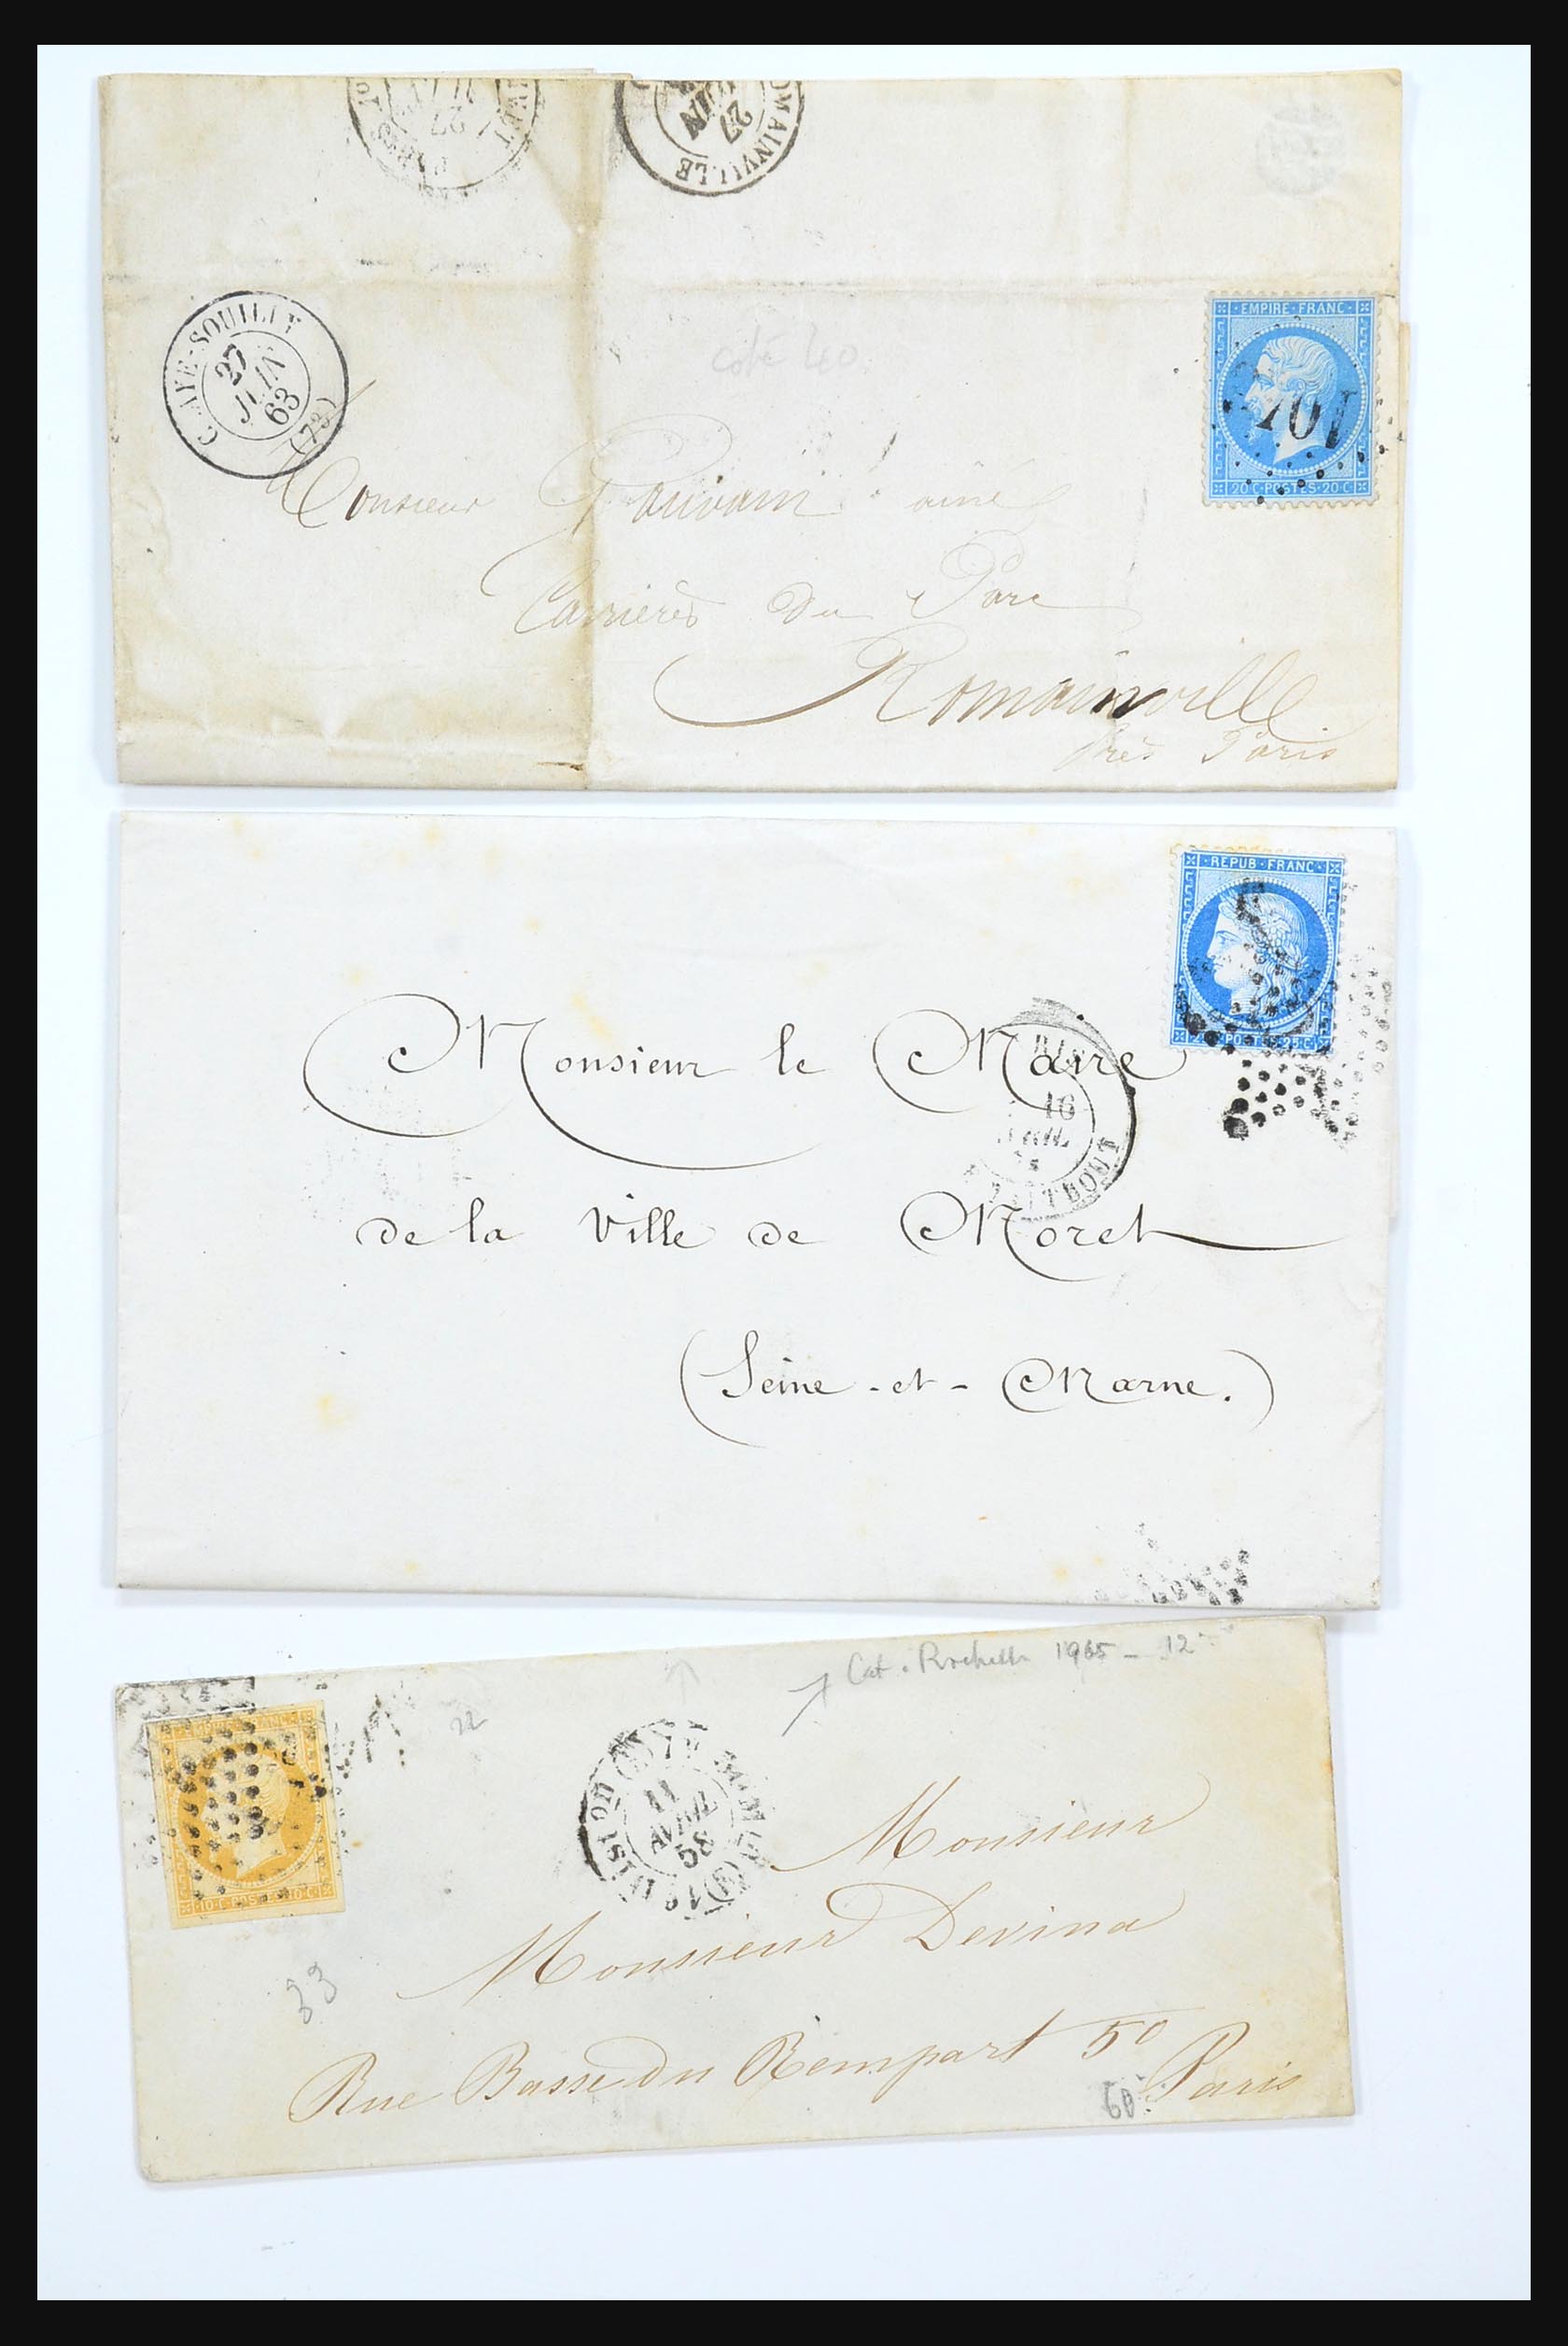 27
ROMAINVILLE
27
JUIN
CLAYE-SOUILLY
27
JUIN
63
(73)
coté 40
EMPIRE·FRANC
20·C·POSTES·20·C
Monsieur Pauvain ainé
Carrières du Parc
Romainville
Près Paris
REPUB·FRANC
POSTES 25 C
Monsieur le Maire
16
TAITBOUT
de la Ville de Moret
(Seine-et-Marne.)
Cat. Rochelle 1965 – 12
22
11
Monsieur
Monsieur Devina
33
Rue Basse du Rempart 50
Paris
60